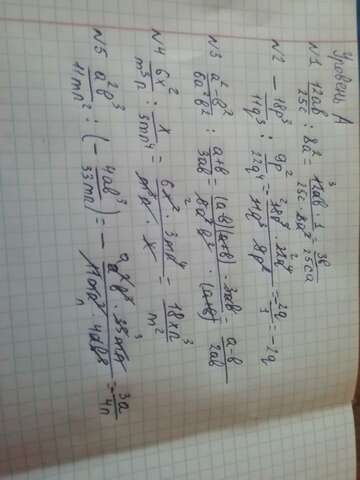 Уровень А
№1 12ab/25c : 8a² = 12ab · 1/25c · 8a² = 3b/25ca
№2 − 18p³/11q³ : 9p²/22q⁴ = 18p³ · 22q⁴/11q³ · 9p² = −2q/1 = −2q
№3 a²−b²/6a²b² : a+b/3ab = (a−b)(a+b) · 3ab/6a²b² · (a+b) = a−b/2ab
№4 6x²/m³n : x/3mn⁴ = 6x² · 3mn⁴/m³n · x = 18xn³/m²
№5 a²b³/11mn² : (− 4ab³/33mn) = − a²b³ · 33mn/11mn² · 4ab³ = 3a/4n